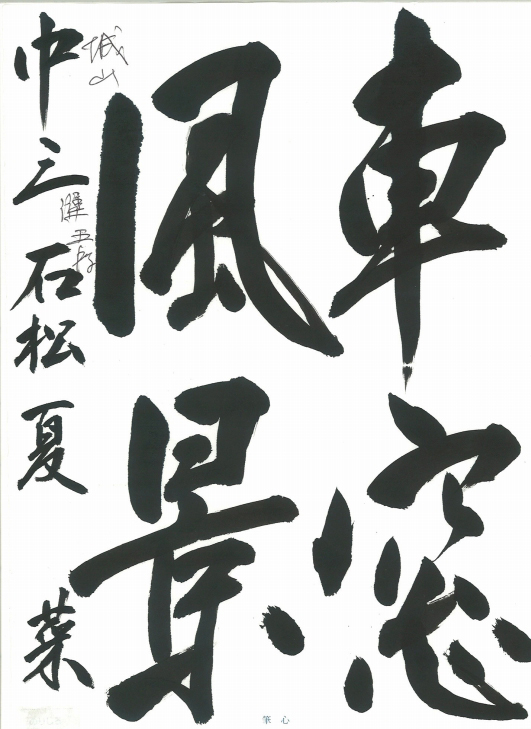 車窓
風景
中三 石松夏菜
城山
筆心